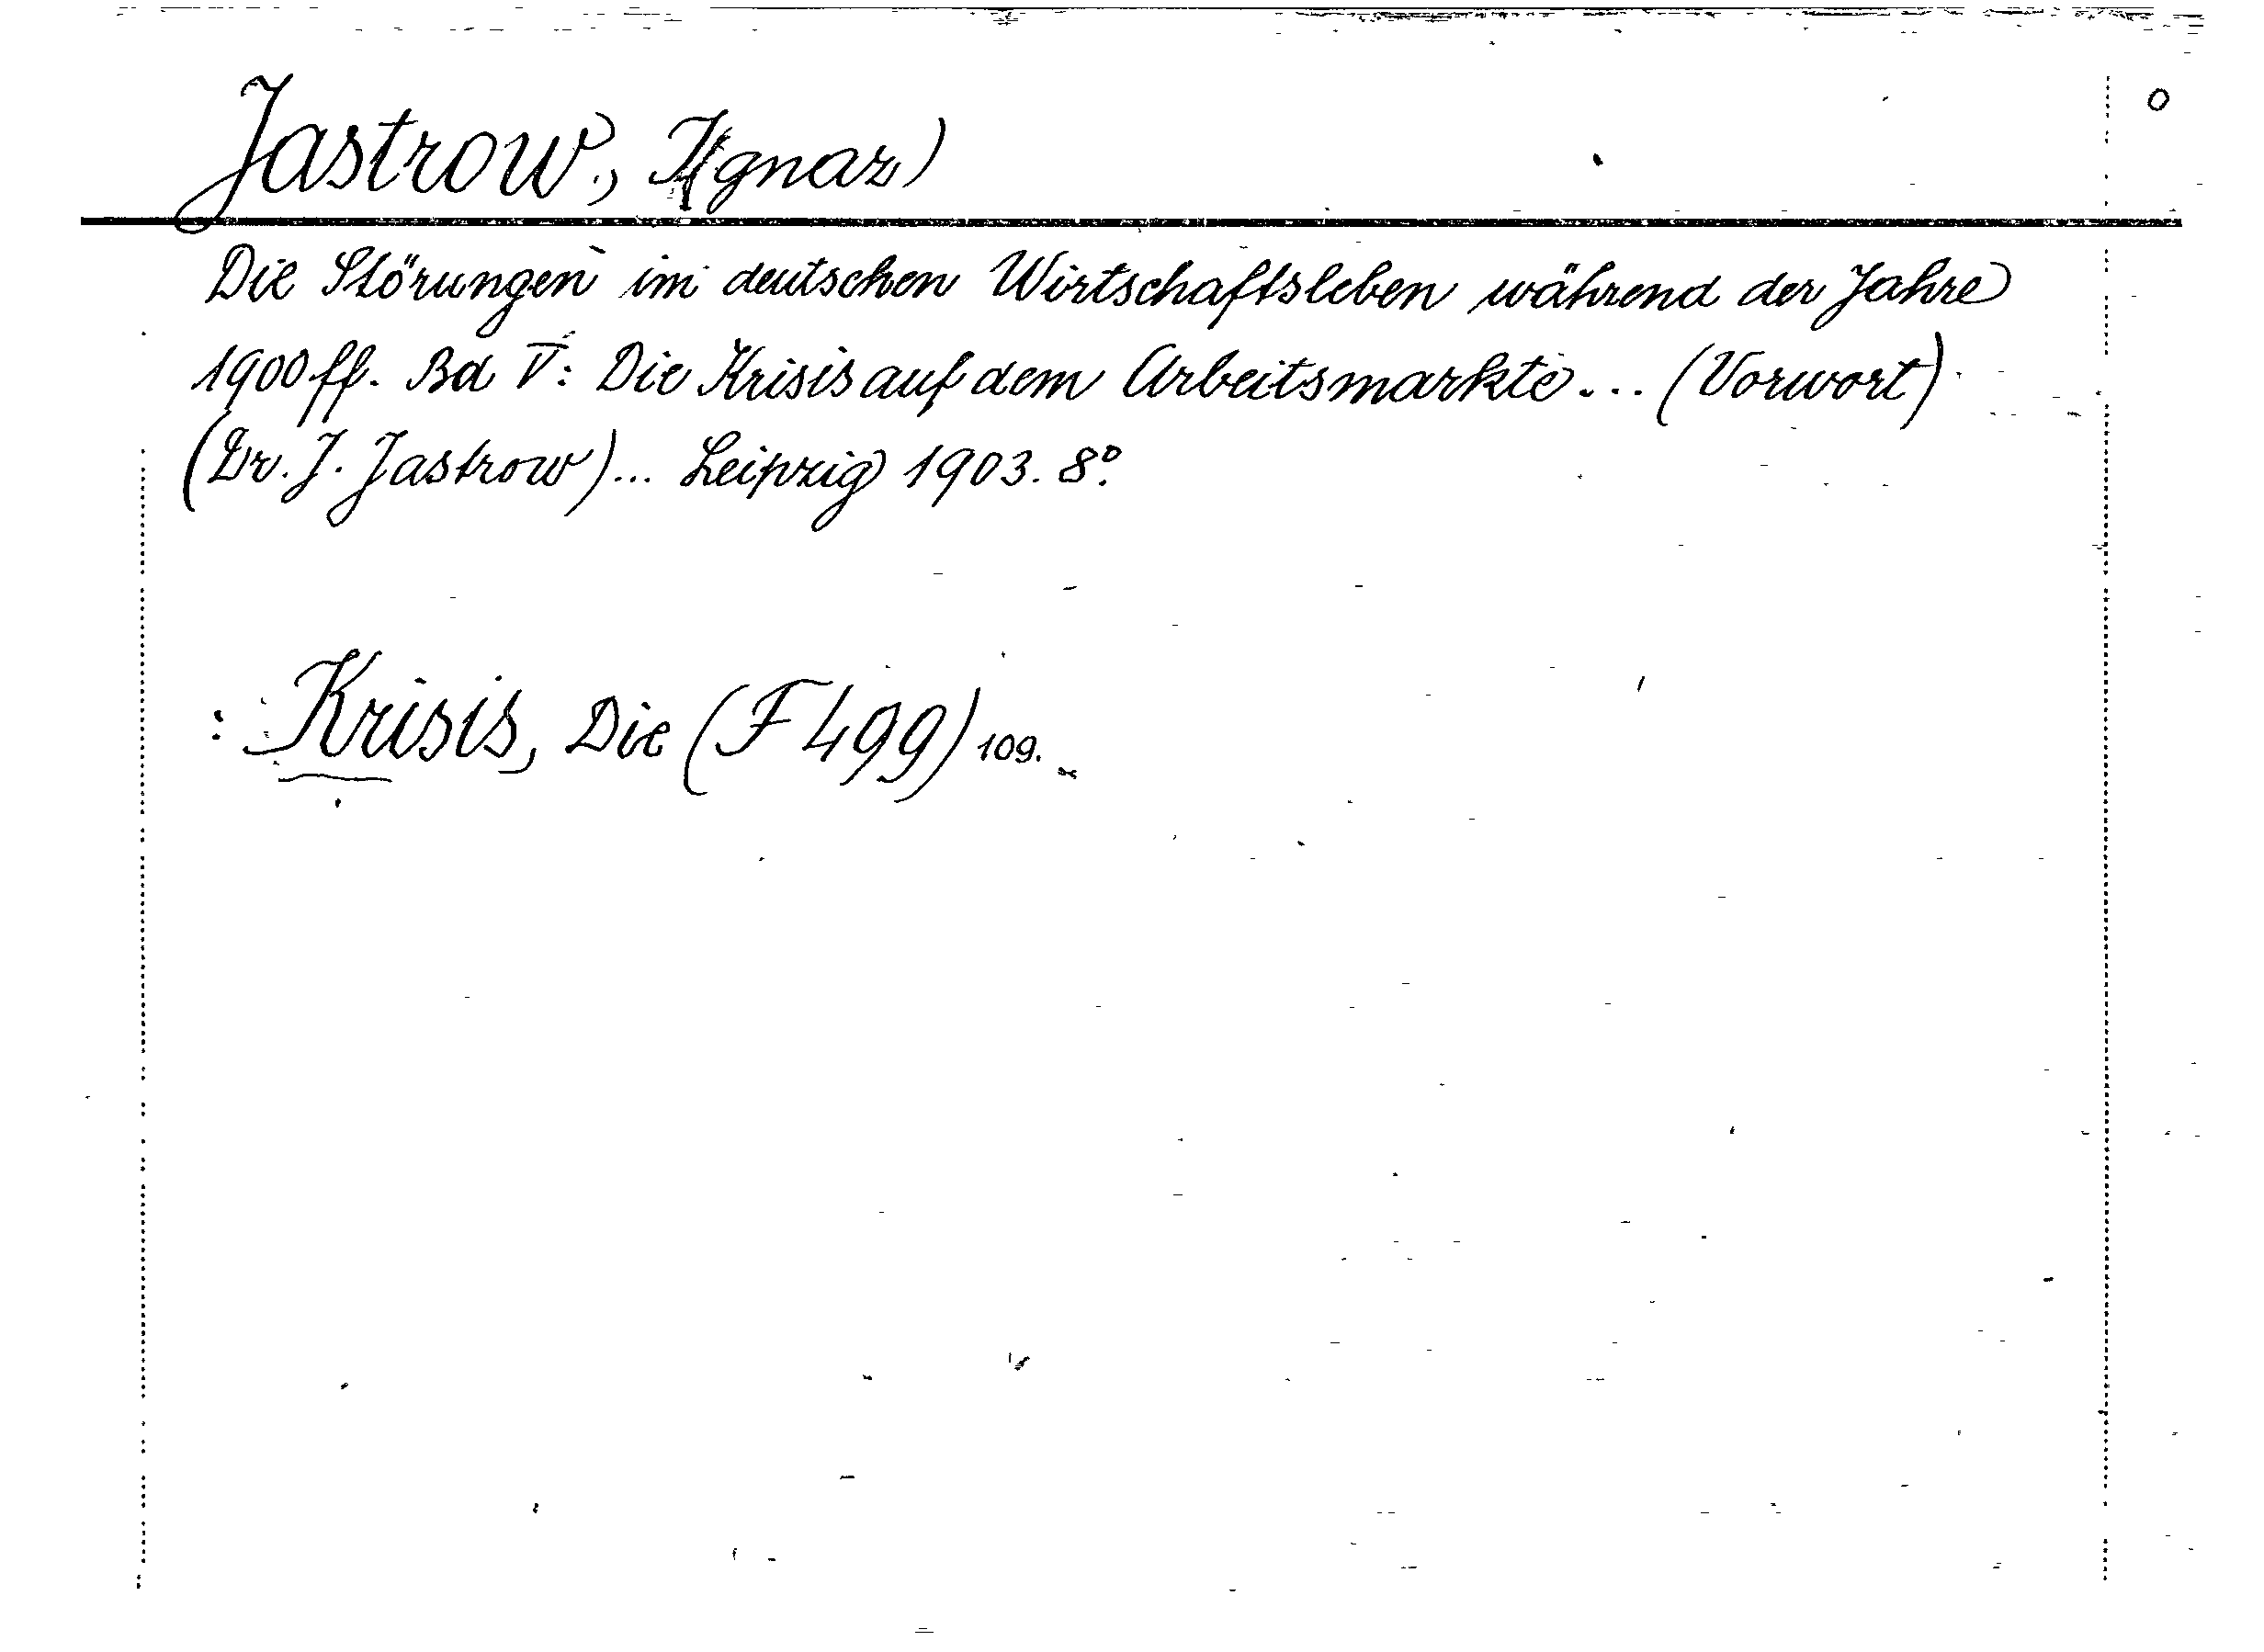 Jastrow, I(gnaz)
Die Störungen im deutschen Wirtschaftsleben während der Jahre
1900ff. Bd V: Die Krisis auf dem Arbeitsmarkte... (Vorwort)
(Dr. J. Jastrow)... Leipzig 1903. 8°.
: Krisis, Die (F 499) 109.